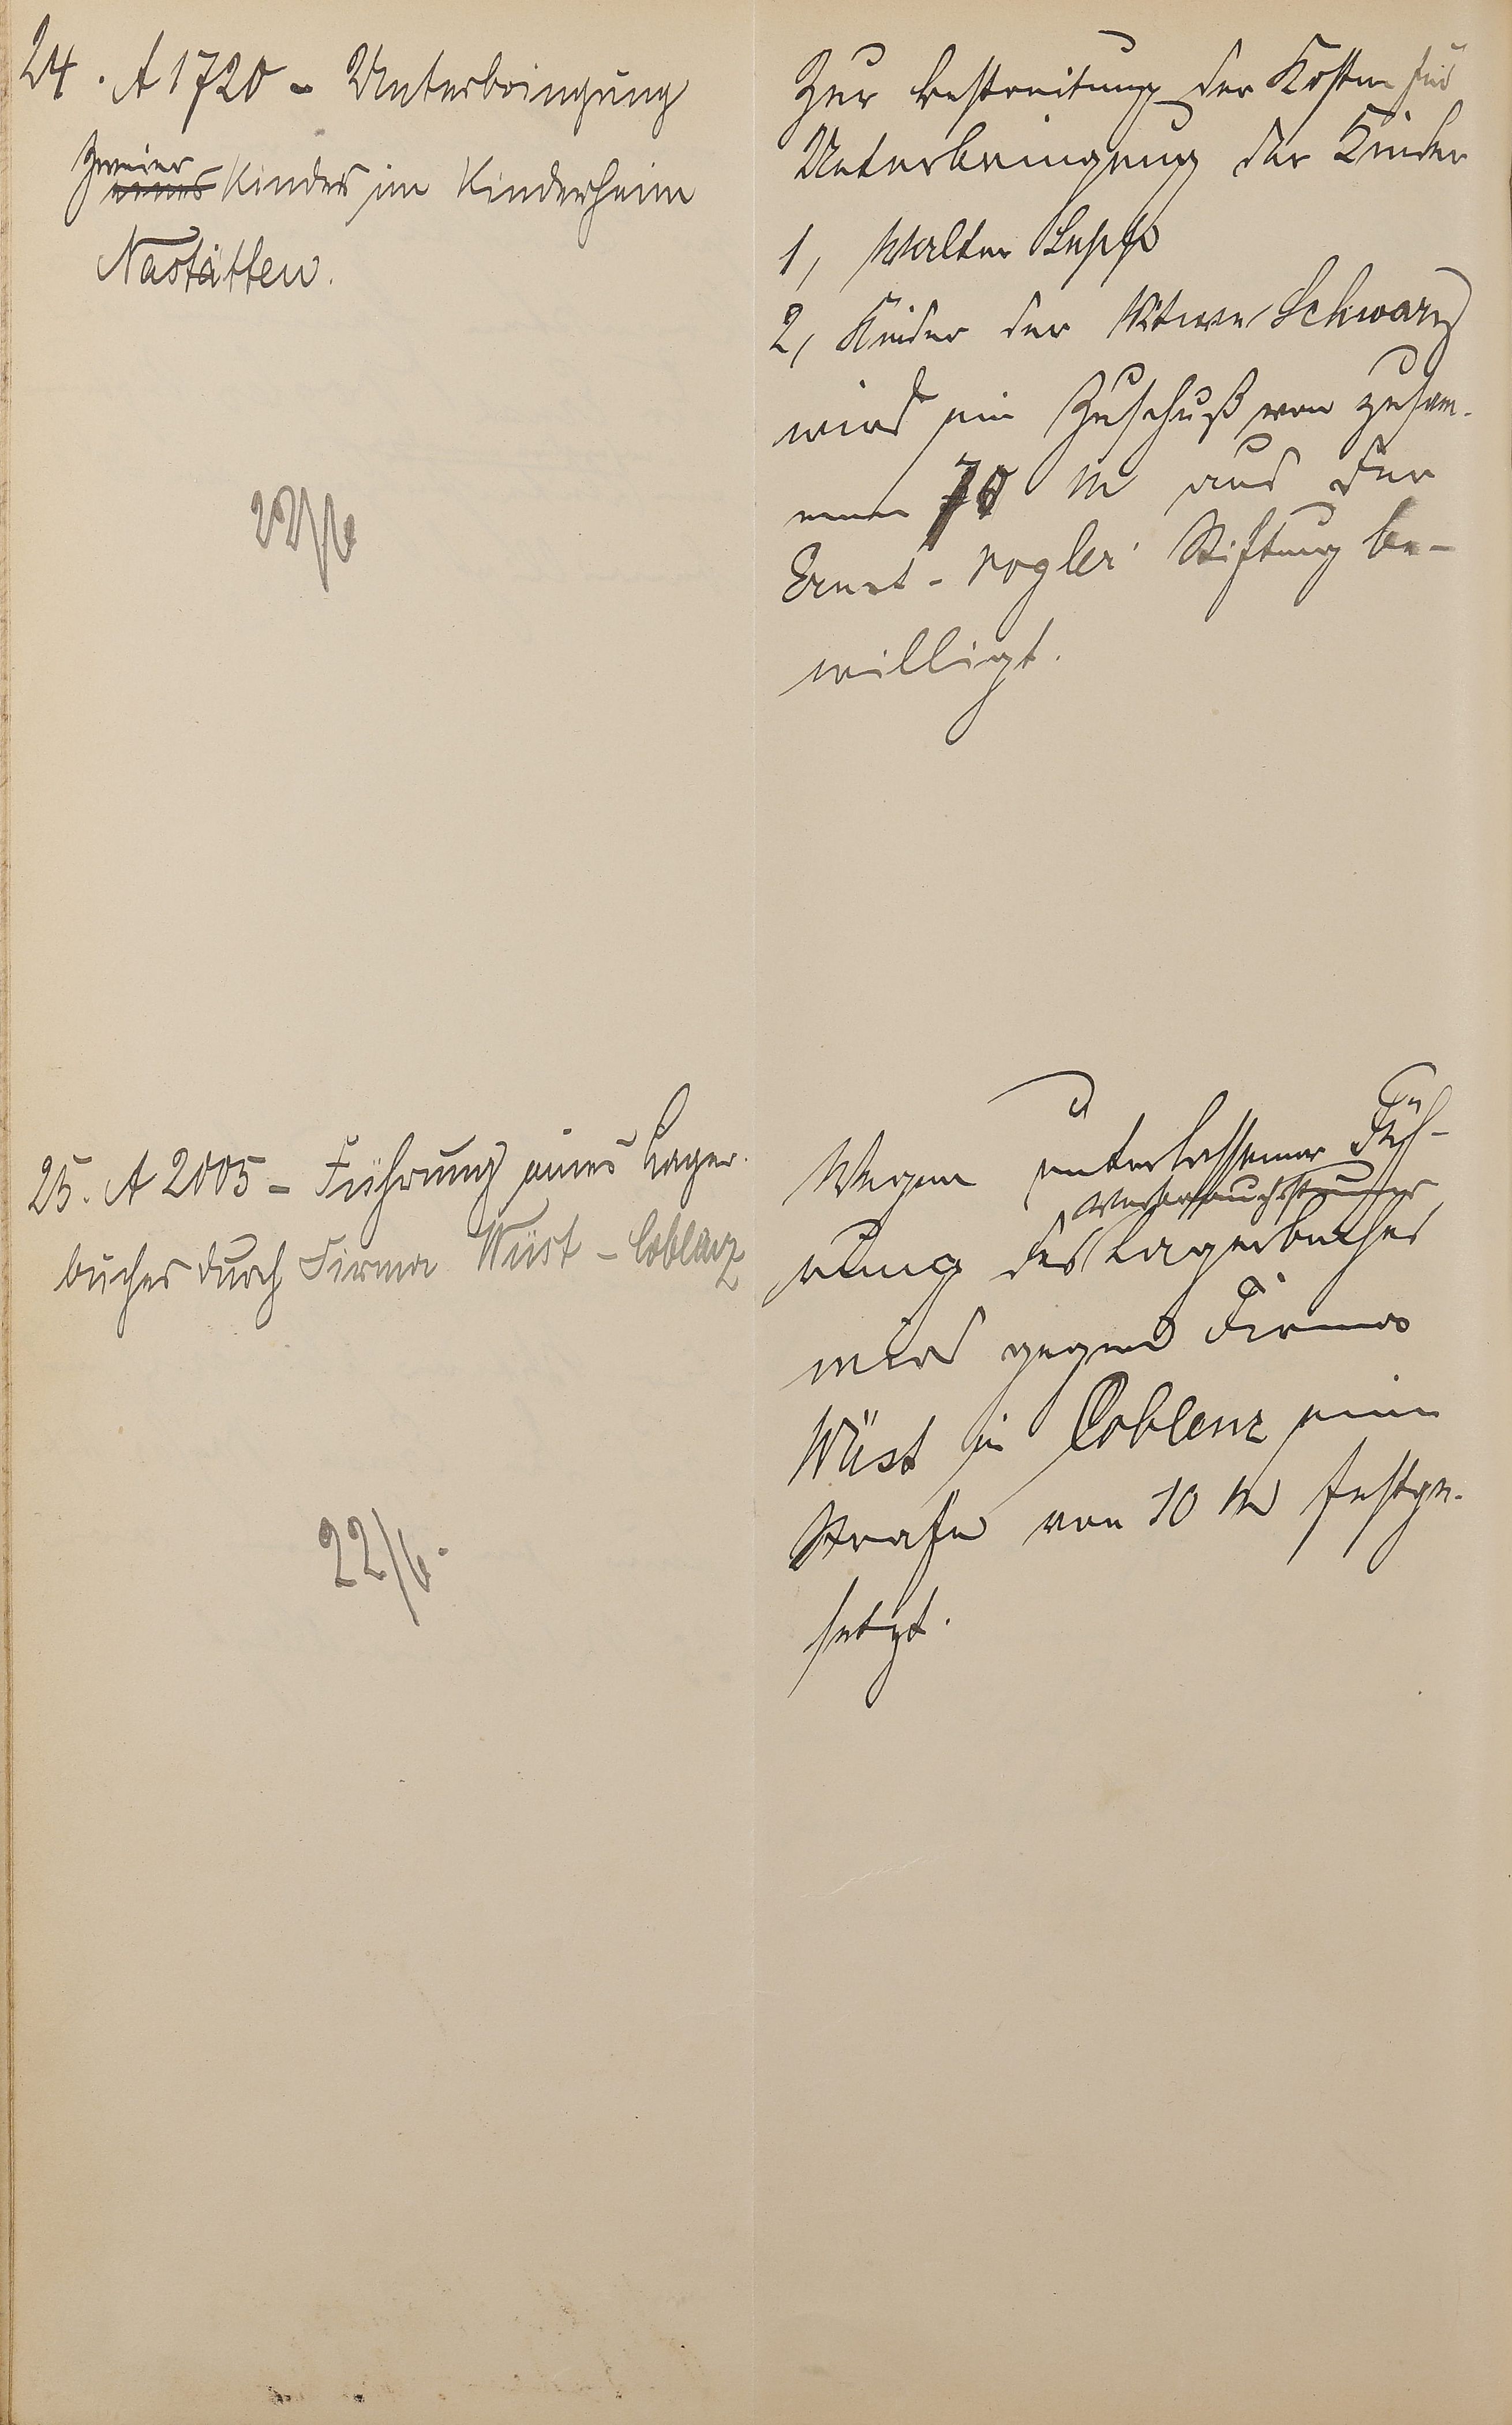 24. A 1720 - Unterbringung
zweier
eines Kinder im Kinderheim
Nastätten.
22/6
Zur Bestreitung der Kosten für
Unterbringung der Kinder
1, Walter Lepp
2, Kinder der Witwe Schwarz
wird ein Zuschuß von zusam-
men 70 M aus der
Ernst-Vogler Stiftung be-
willigt.
25. A 2005 - Führung eines Lager-
buches durch Firma Wüst - Coblenz
22/6.
Wegen unterlassener Füh-
rung des Lagerbuches
wird gegen Firma
Wüst in Coblenz eine
Strafe von 10 M festge-
setzt.